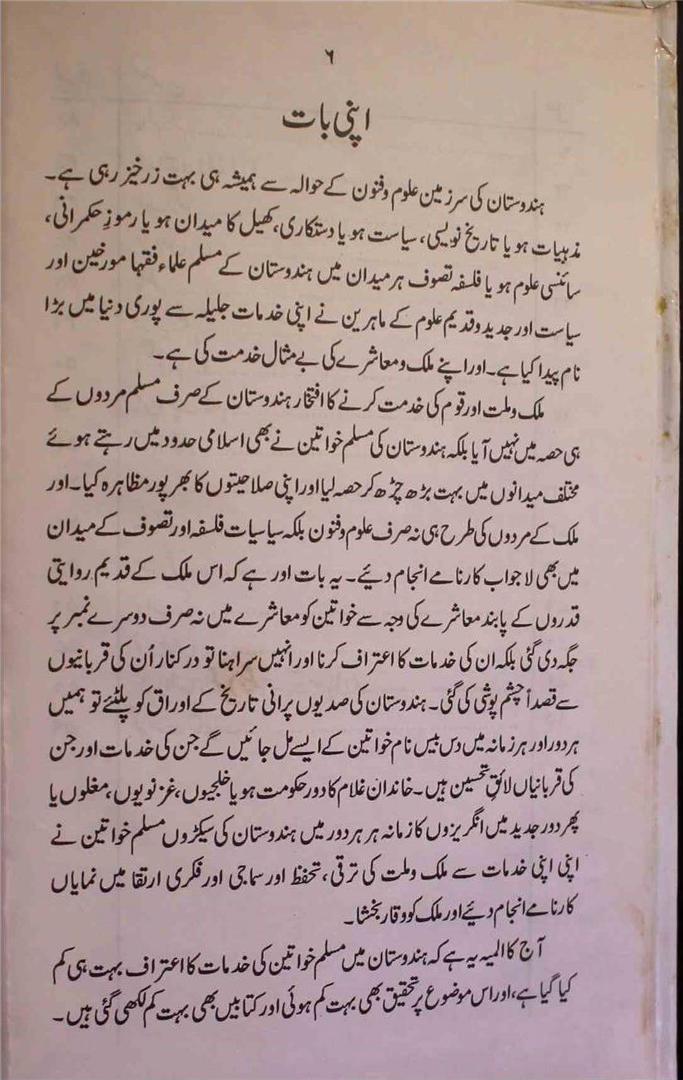 ۶
اپنی بات
ہندوستان کی سرزمین علوم و فنون کے حوالہ سے ہمیشہ ہی بہت زرخیز رہی ہے۔
مذہبیات ہو یا تاریخ نویسی، سیاست ہو یا دستکاری، کھیل کا میدان ہو یا رموزِ حکمرانی،
سائنسی علوم ہو یا فلسفہ تصوف ہر میدان میں ہندوستان کے مسلم علماء فقہا مورخین اور
سیاست اور جدید و قدیم علوم کے ماہرین نے اپنی خدمات جلیلہ سے پوری دنیا میں بڑا
نام پیدا کیا ہے۔ اور اپنے ملک و معاشرے کی بے مثال خدمت کی ہے۔
ملک و ملت اور قوم کی خدمت کرنے کا افتخار ہندوستان کے صرف مسلم مردوں کے
ہی حصہ میں نہیں آیا بلکہ ہندوستان کی مسلم خواتین نے بھی اسلامی حدود میں رہتے ہوئے
مختلف میدانوں میں بہت بڑھ چڑھ کر حصہ لیا اور اپنی صلاحیتوں کا بھرپور مظاہرہ کیا۔ اور
ملک کے مردوں کی طرح ہی نہ صرف علوم و فنون بلکہ سیاسیات فلسفہ اور تصوف کے میدان
میں بھی لاجواب کارنامے انجام دیئے۔ یہ بات اور ہے کہ اس ملک کے قدیم روایتی
قدروں کے پابند معاشرے کی وجہ سے خواتین کو معاشرے میں نہ صرف دوسرے نمبر پر
جگہ دی گئی بلکہ ان کی خدمات کا اعتراف کرنا اور انہیں سراہنا تو درکنار اُن کی قربانیوں
سے قصداً چشم پوشی کی گئی۔ ہندوستان کی صدیوں پرانی تاریخ کے اوراق کو پلٹئے تو ہمیں
ہر دور اور ہر زمانہ میں دس بیس نام خواتین کے ایسے مل جائیں گے جن کی خدمات اور جن
کی قربانیاں لائقِ تحسین ہیں۔ خاندان غلام کا دور حکومت ہو یا خلجیوں، غزنویوں، مغلوں یا
پھر دور جدید میں انگریزوں کا زمانہ ہر ہر دور میں ہندوستان کی سیکڑوں مسلم خواتین نے
اپنی اپنی خدمات سے ملک و ملت کی ترقی، تحفظ اور سماجی اور فکری ارتقا میں نمایاں
کارنامے انجام دیئے اور ملک کو وقار بخشا۔
آج کا المیہ یہ ہے کہ ہندوستان میں مسلم خواتین کی خدمات کا اعتراف بہت ہی کم
کیا گیا ہے، اور اس موضوع پر تحقیق بھی بہت کم ہوئی اور کتابیں بھی بہت کم لکھی گئی ہیں۔